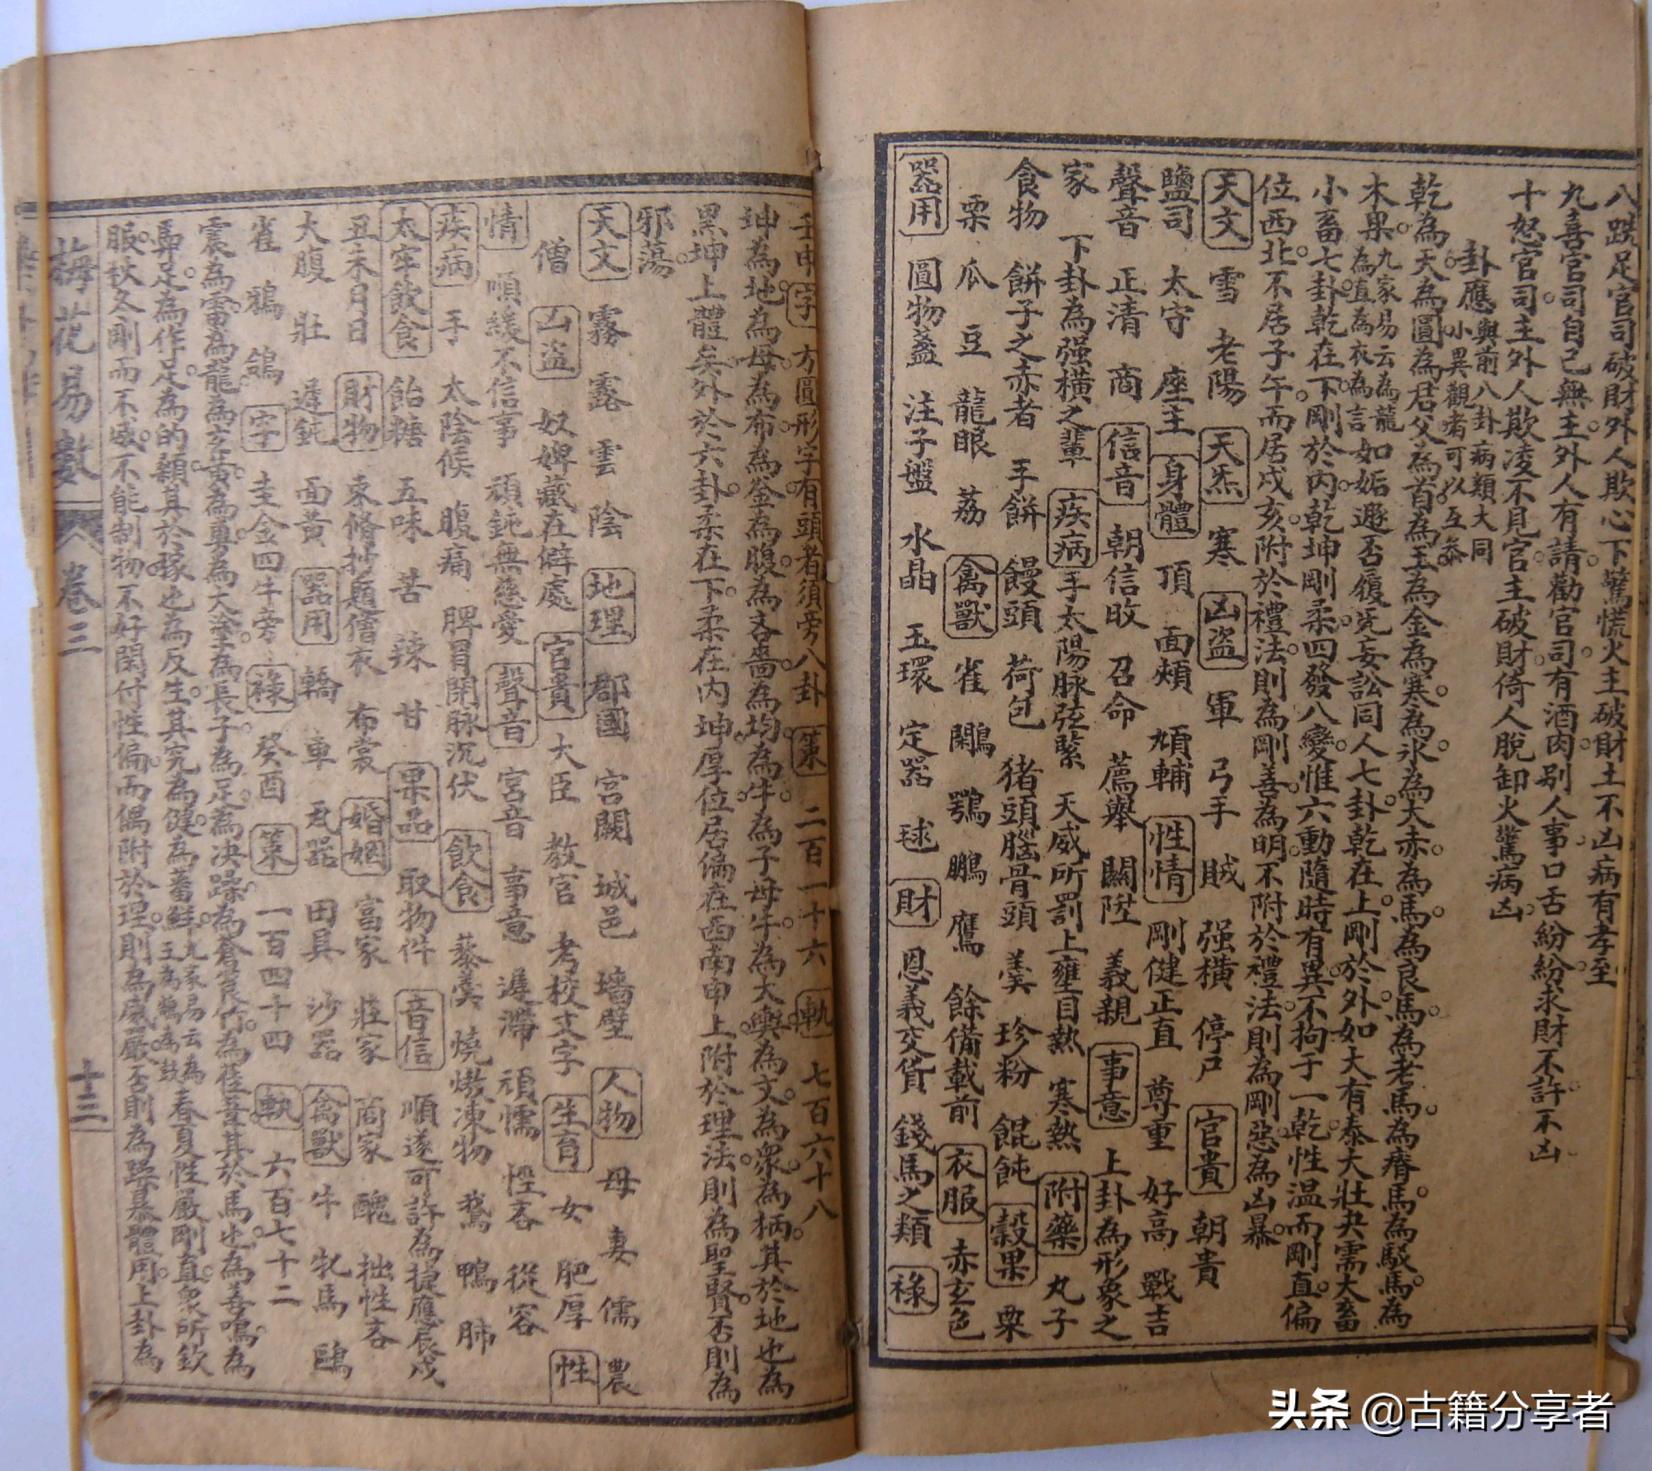 八跌足官司破財外人欺心下驚慌火主破財土不凶病有孝至
九喜官司自己無主外人有請勸官司有酒肉別人事口舌紛紛求財不許不凶
十怒官司主外人欺凌不見官主破財倚人脫卸火驚病凶
卦應與前八卦病類大同小異觀者可以互叅
乾為天為圓為君父為首為玉為金為寒為冰為大赤為馬為良馬為老馬為瘠馬為駁馬為
木果九家易云為龍為直為衣為言如姤遯否履旡妄訟同人七卦乾在上剛於外如大有泰大壯夬需大畜
小畜七卦乾在下剛於內乾坤剛柔四發八變惟六動隨時有異不拘于一乾性温而剛直偏
位西北不居子午而居戌亥附於禮法則為剛善為明不附於禮法則為剛惡為凶暴
天文 雪 老陽 天炁 寒 凶盜 軍 弓手 賊 强橫 停尸 官貴 朝貴
鹽司 太守 座主 身體 頂 面頰 頄輔 性情 剛健正直 尊重 好高 戰吉
聲音 正清 商 信音 朝信 召命 薦舉 關陞 義親 事意 上卦為形象之
家 下卦為强橫之輩 疾病 手太陽脉弦緊 天威所罰上壅目熱 寒熱 附藥 丸子
食物 餅子之赤者 手餅 饅頭 荷包 猪頭腦骨頭 羹 珍粉 餛飩 穀果 粟
栗 瓜 豆 龍眼 荔 禽獸 雀 鵰 鶚 鵬 鷹 餘備載前 衣服 赤玄色
器用 圓物蓋 注子盤 水晶 玉環 定器 毬 財 恩義交貨 錢馬之類 祿
壬申 字 方圓形字有頭者須旁八卦 策 二百一十六 軌 七百六十八
坤為地為母為布為釜為腹為吝嗇為均為牛為子母牛為大輿為文為衆為柄其於地也為
黑坤上體矣外於六卦柔在下柔在內坤厚位居偏在西南申上附於理法則為聖賢否則為
邪蕩
天文 霧 露 雲 陰 地理 郡國 宮闕 城邑 墻壁 人物 母 妻 儒 農
僧 凶盜 奴婢藏在僻處 官貴 大臣 教官 考校文字 生育 女 肥厚 性
情 順緩不信事 頑鈍無慈愛 聲音 宮音 事意 遲滯 頑懦 慳吝 從容
疾病 手 太陰候 腹痛 脾胃閉脉沉伏 飲食 藜羹 燒燉凍物 鵞 鴨 肺
太牢飲食 飴糖 五味 苦 辣 甘 果品 取物件 音信 順遂可許為捷應辰戌
丑未月日 財物 束脩抄題僧衣 布裳 婚姻 富家 莊家 商家 醜 拙性吝
大腹 壯 遲鈍 面黃 器用 轎 車 瓦器 田具 沙器 禽獸 牛 牝馬 鷗
雀 鴉 鴿 字 圭金四牛旁 祿 癸酉 策 一百四十四 軌 六百七十二
震為雷為龍為玄黃為旉為大塗為長子為足為决躁為蒼筤竹為萑葦其於馬也為善鳴為
馵足為作足為的顙其於稼也為反生其究為健為蕃鮮九家易云為王為鵠為鼓春夏性嚴剛直衆所欽
服秋冬剛而不威不能制物不好閑付性偏而偶附於理則為威嚴否則為躁暴體用上卦為
梅花易數 卷三 十三
头条 @古籍分享者